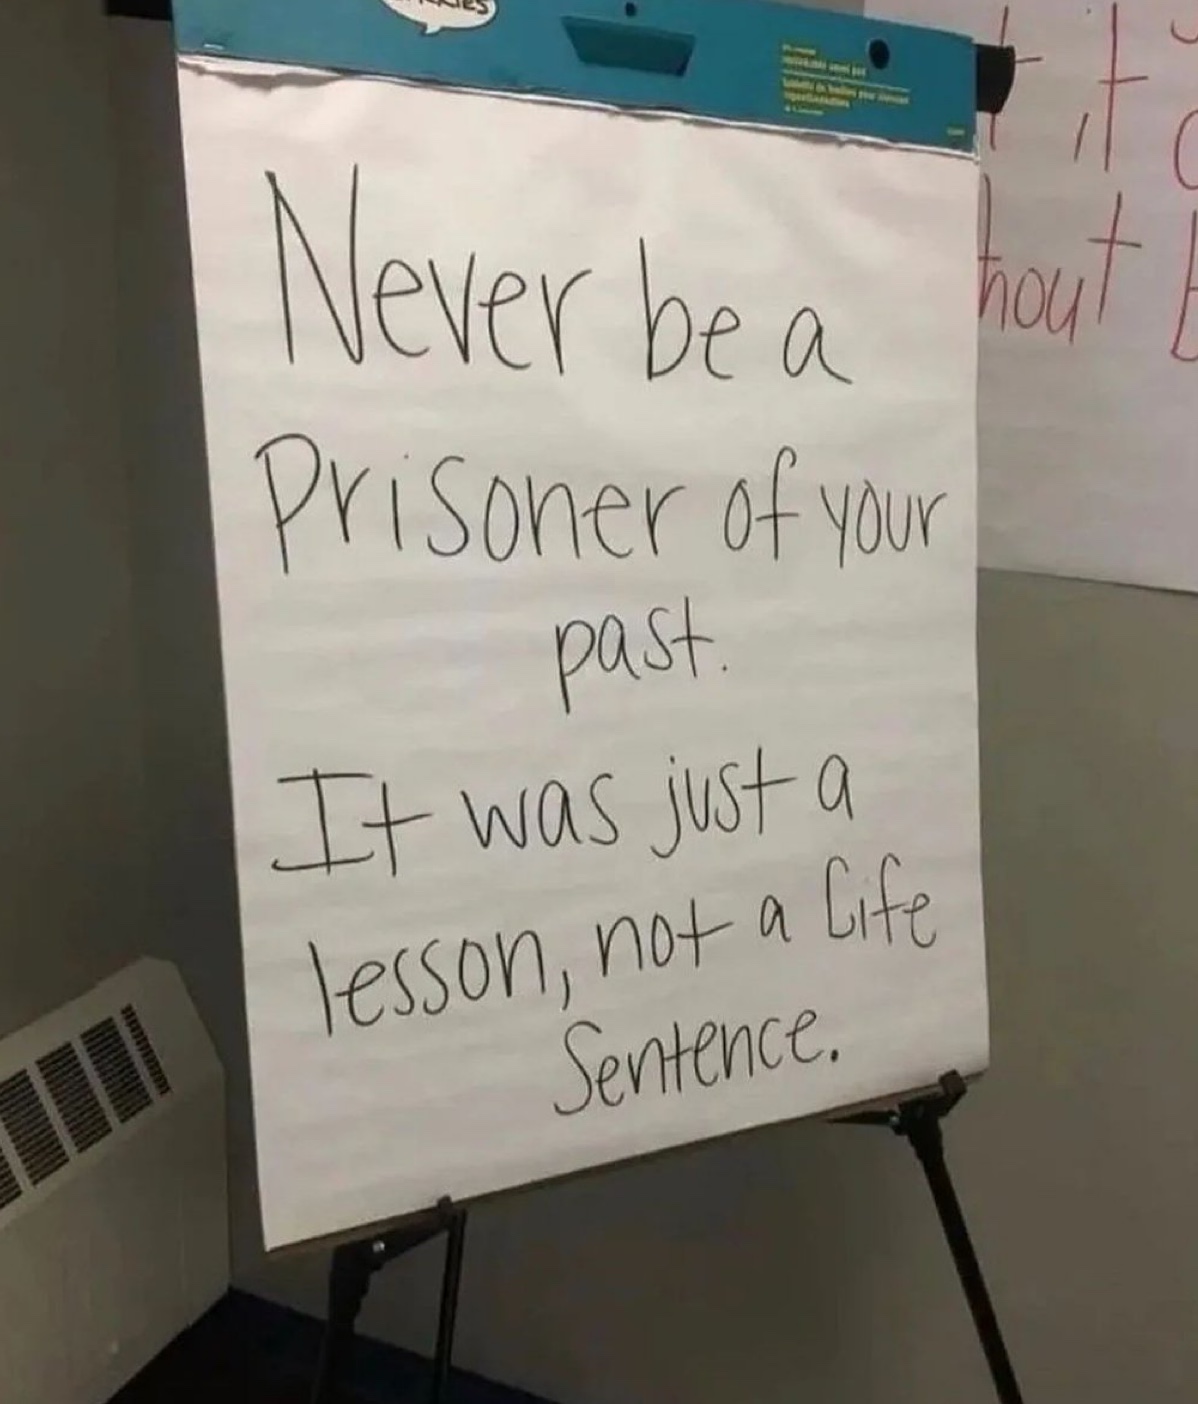 Never be a
Prisoner of your
past.
It was just a
lesson, not a life
Sentence.
it
hout